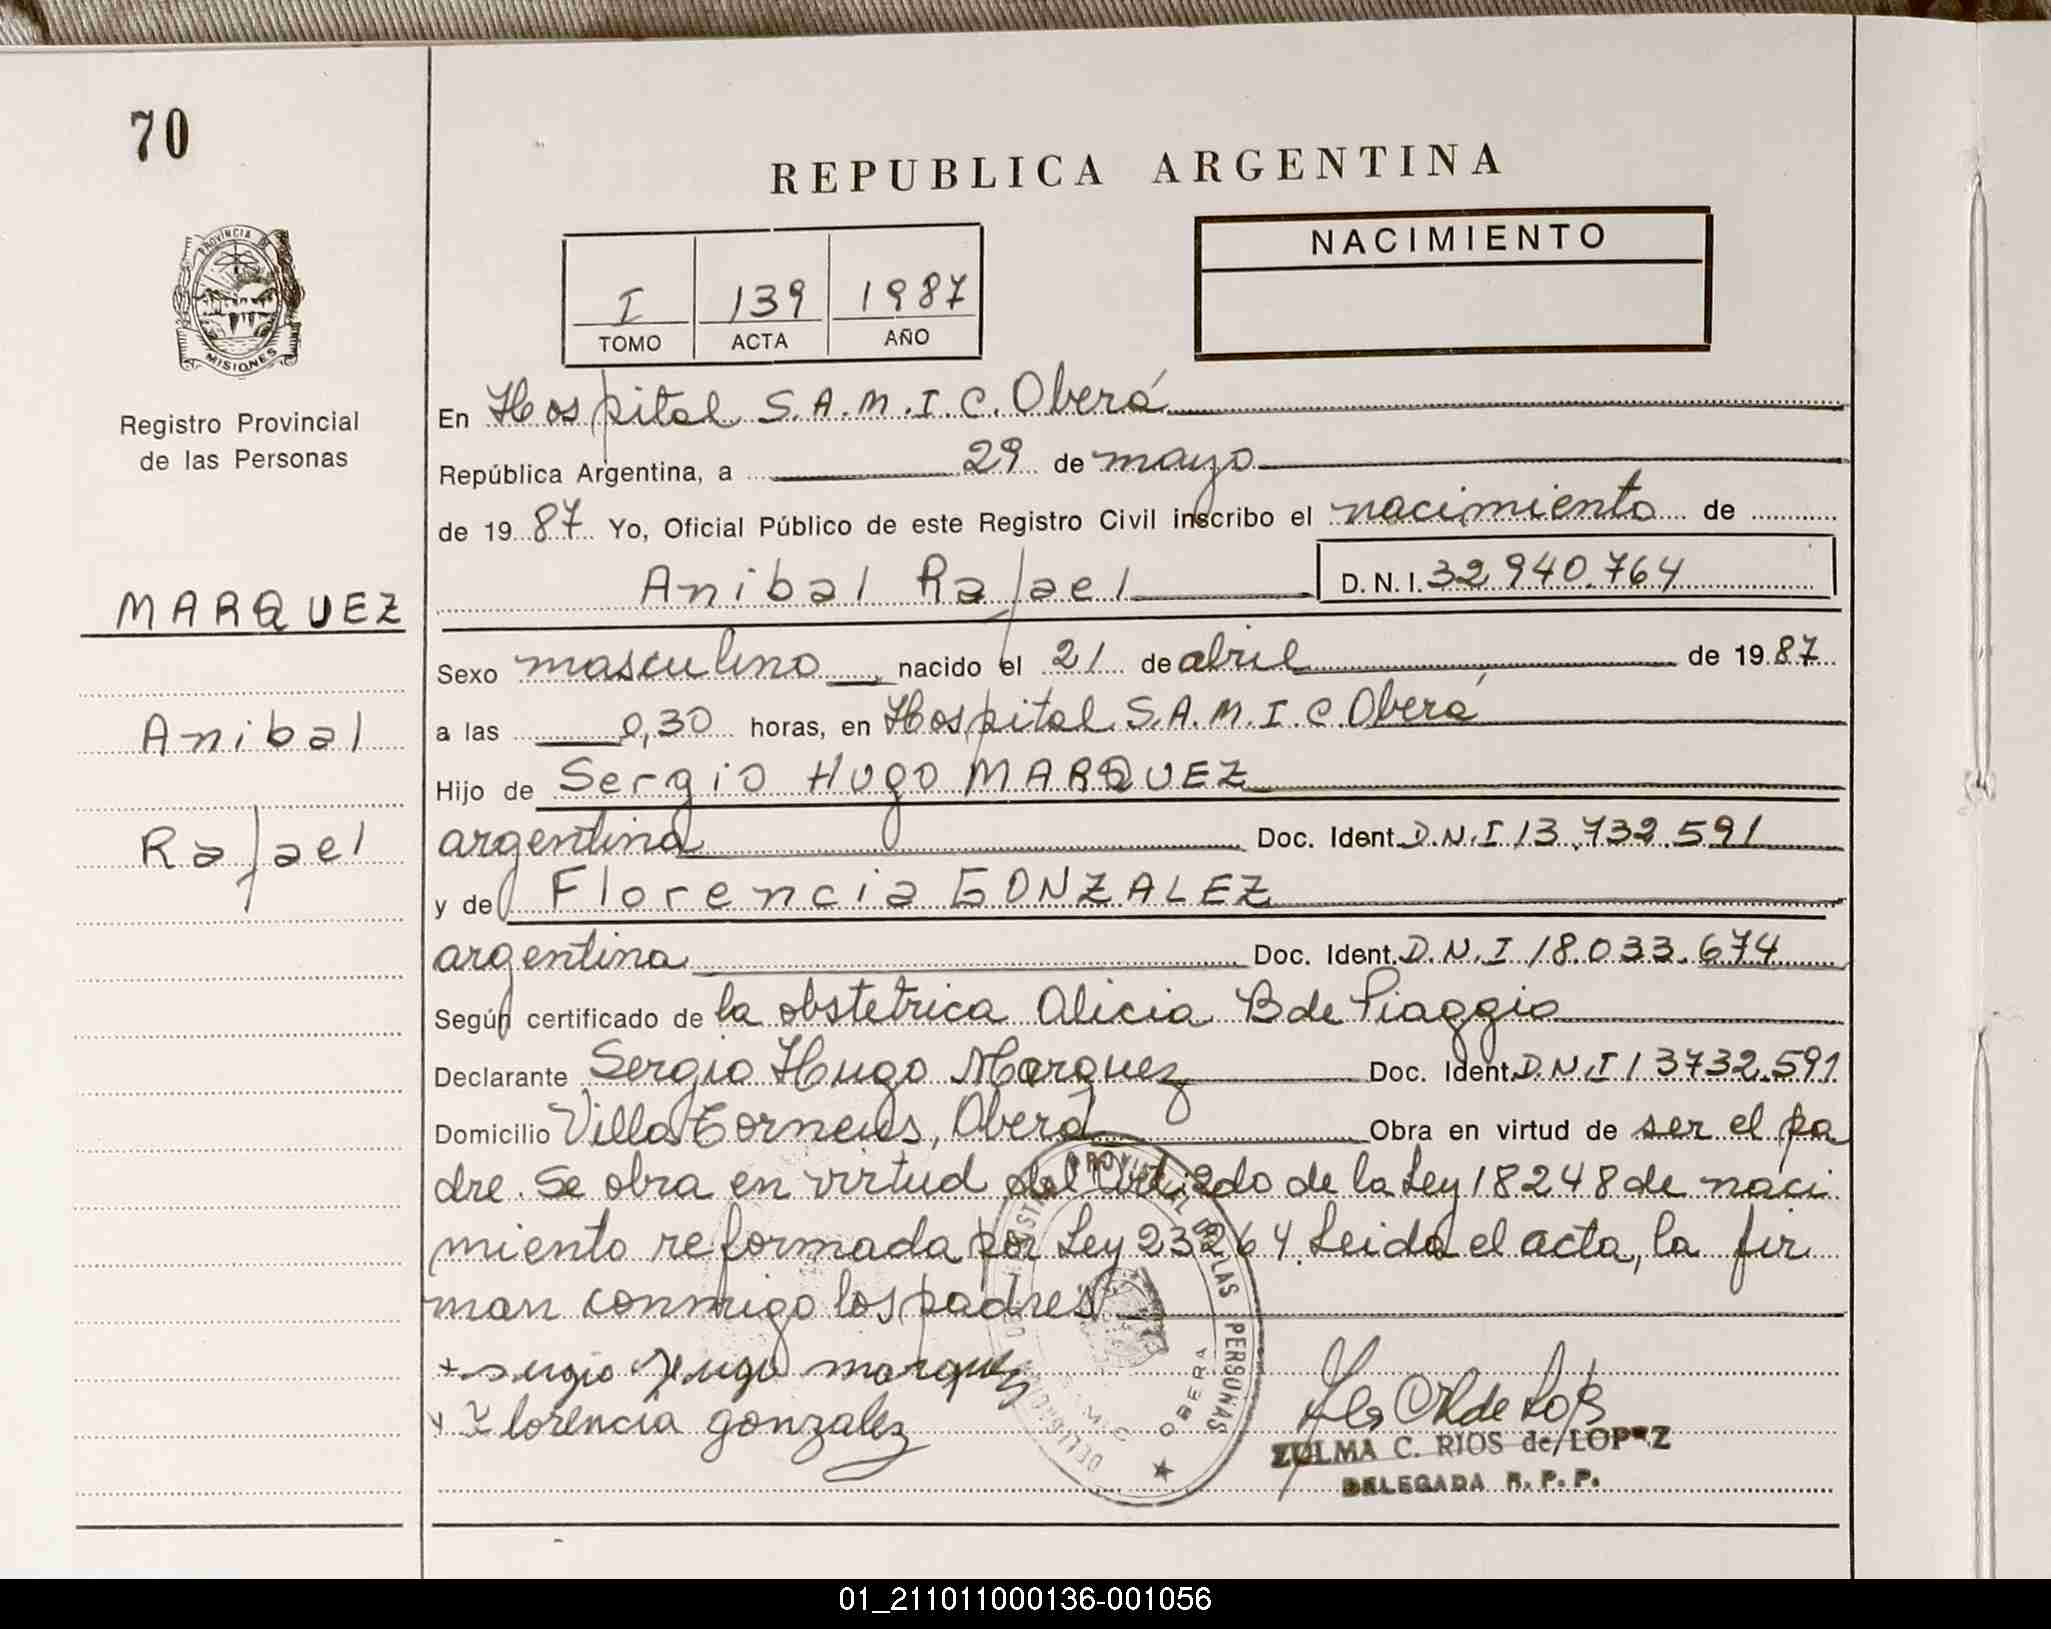 70
REPUBLICA ARGENTINA
NACIMIENTO
I 139 1987
TOMO ACTA AÑO
PROVINCIA DE
MISIONES
Registro Provincial
de las Personas
MARQUEZ
Anibal
Rafael
En Hospital S.A.M.I.C. Oberá
República Argentina, a 29 de mayo
de 1987 Yo, Oficial Público de este Registro Civil inscribo el nacimiento de
Anibal Rafael D.N.I. 32.940.764
Sexo masculino, nacido el 21 de abril de 1987
a las 0,30 horas, en Hospital S.A.M.I.C Oberá
Hijo de Sergio Hugo MARQUEZ
argentina Doc. Ident. D.N.I 13.732.591
y de Florencia GONZALEZ
argentina Doc. Ident. D.N.I 18.033.674
Según certificado de la obstetrica Alicia B de Piaggio
Declarante Sergio Hugo Marquez Doc. Ident. D.N.I 13732.591
Domicilio Villa Oberá Obra en virtud de ser el pa
dre. Se obra en virtud del Art. 2do de la Ley 18248 de naci
miento reformada por Ley 23264. Leida el acta, la fir
man conmigo los padres
+ sergio Hugo marquez
+ Florencia gonzalez
PROVINCIAL DE LAS PERSONAS
OBERA
ZULMA C. RIOS de LOPEZ
DELEGADA R. P. P.
01_211011000136-001056